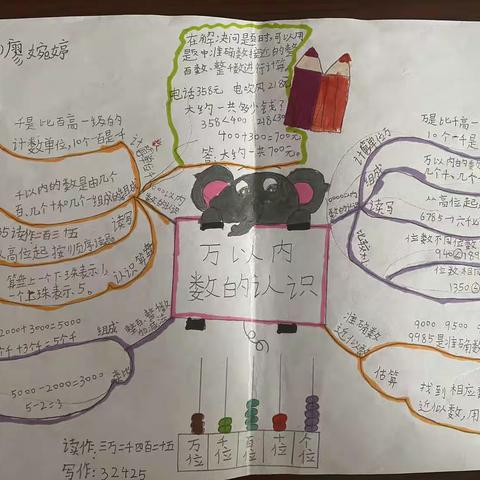 廖婉婷
在解决问题时,可以用
题中准确数接近的整
百数、整千数进行计算。
电话358元 电吹风218元
大约一共多少钱?
358<400 218<300
400+300=700元
答:大约一共700元。
千是比百高一级的
计数单位,10个一百是一千
千以内的数是由几个
百、几个十和几个一组成的
组成
读作一百三十五
从高位起,按顺序读
读写
算盘上一个下珠表示1,
一个上珠表示5。
认识算盘
万以内
数的认识
万是比千高一
10个一千是
计数单位万
组成
读写
从高位起
6785→六千
比较大小
位数不同
位数相同
2000+3000=5000
组成
整百整千数
加减法
5000-2000=3000
5-2=3
类比
准确数
近似数
9000 9500
9985是准确数
估算
找到相应
近似数,用
万位
千位
百位
十位
个位
读作:三万二千四百二十五
写作:32425